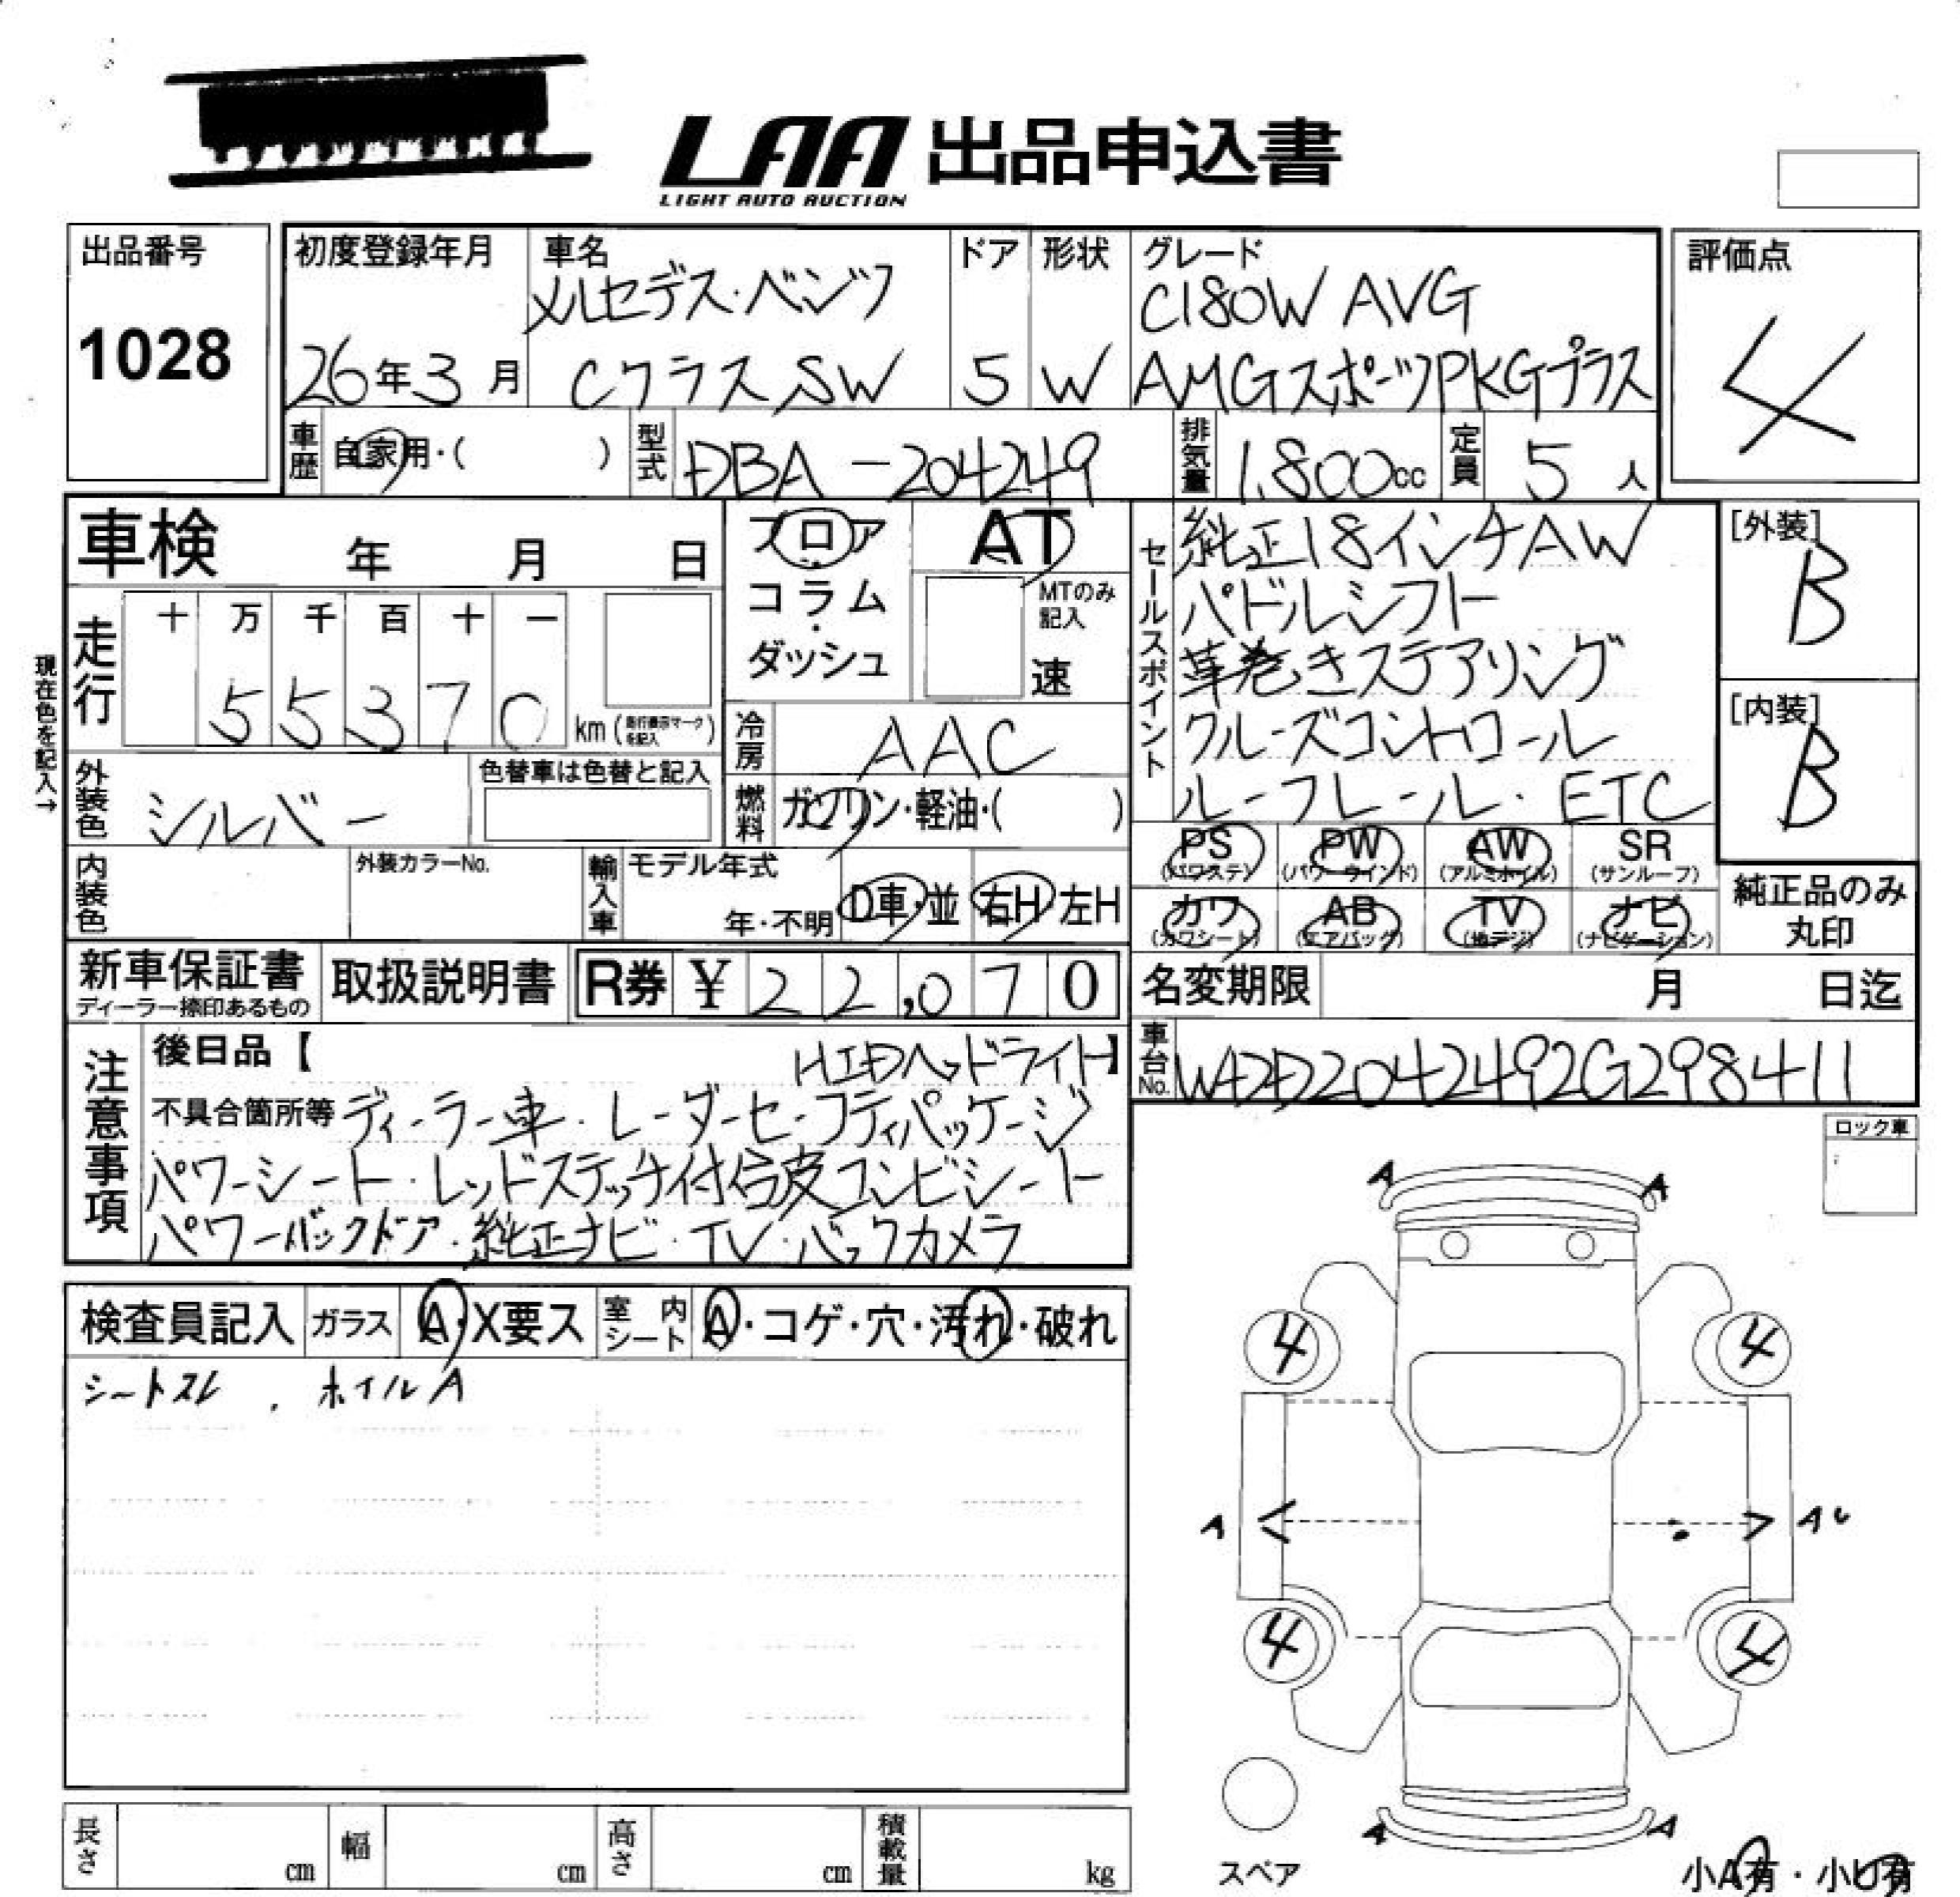 LAA 出品申込書
LIGHT AUTO AUCTION
出品番号
1028
初度登録年月
26年3月
車名
メルセデス・ベンツ
Cクラス SW
ドア
5
形状
W
グレード
C180W AVG
AMGスポーツPKGプラス
評価点
4
車歴 自家用・( )
型式 DBA-204249
排気量 1.800cc
定員 5人
車検 年 月 日
現在色を記入→
走行
十 万 千 百 十 一
5 5 3 7 0 km
(走行表示マークを記入)
フロア
コラム
・
ダッシュ
AT
MTのみ記入
速
冷房 AAC
燃料 ガソリン・軽油・( )
外装色 シルバー
色替車は色替と記入
内装色
外装カラーNo.
輸入車
モデル年式
年・不明
D車・並
右H 左H
セールスポイント
純正18インチAW
パドルシフト
革巻きステアリング
クルーズコントロール
ルーフレール・ETC
[外装]
B
[内装]
B
PS PW AW SR
(パワステ) (パワーウインド) (アルミホイル) (サンルーフ)
カワ AB TV ナビ
(カワシート) (エアバッグ) (地デジ) (ナビゲーション)
純正品のみ
丸印
新車保証書
ディーラー捺印あるもの
取扱説明書
R券 ¥ 22,070
名変期限 月 日迄
車台No. WDD2042492G298411
注意事項
後日品【 】
HIDヘッドライト
不具合箇所等 ディーラー車・レーダーセーフティパッケージ
パワーシート・レッドステッチ付合皮コンビシート
パワーバックドア・純正ナビ・TV・バックカメラ
ロック車
検査員記入 ガラス A・X要ス 室内シート A・コゲ・穴・汚れ・破れ
シートスレ、ホイルA
A A
4 4
A < > A
4 4
A A
スペア
小A有・小U有
長さ cm 幅 cm 高さ cm 積載量 kg